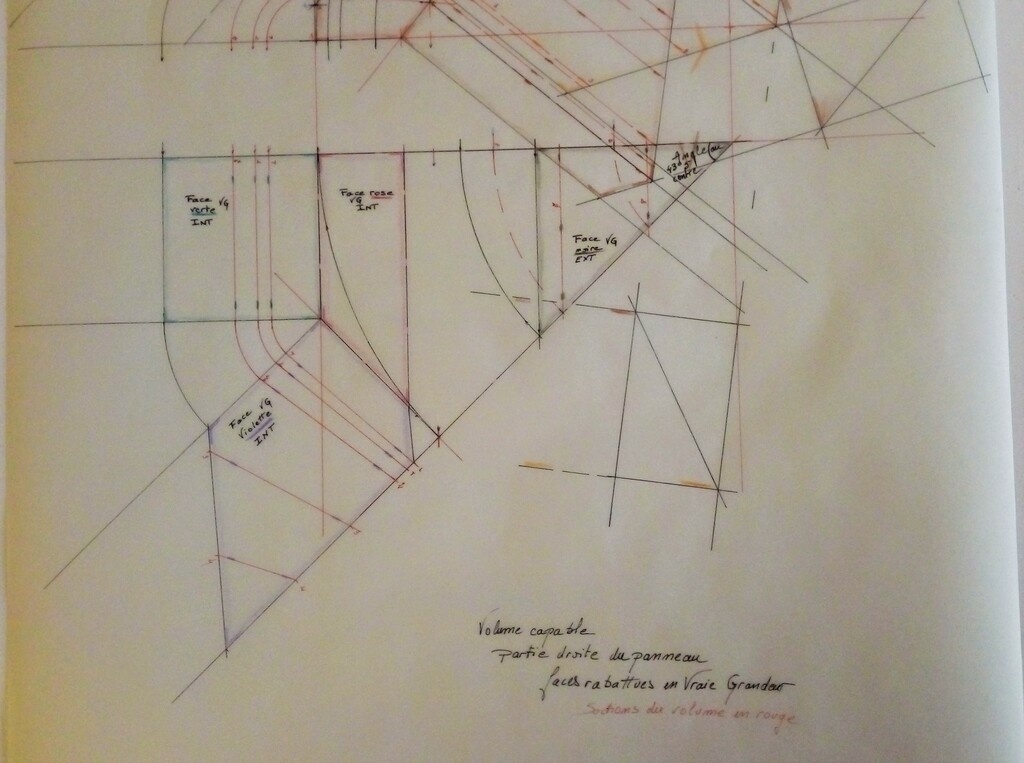 Face VG
verte
INT
Face rose
VG
INT
Angle au
centre
Face VG
noire
EXT
Face VG
Violette
INT
Volume capable
partie droite du panneau
faces rabattues en Vraie Grandeur
Sections du volume en rouge